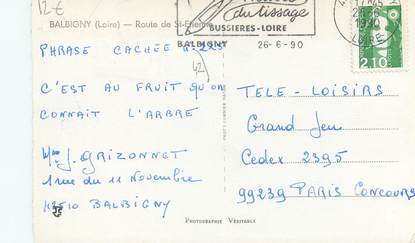 12 €
BALBIGNY (Loire) — Route de St-Etienne
du tissage
BUSSIERES-LOIRE
BALBIGNY 26-6-90
17H45
26-6
1990
LOIRE
2,10
PHRASE CACHÉE
(42)
C'EST AU FRUIT qu'on
CONNAÎT L'ARBRE
Mme J. GRIZONNET
1 rue du 11 Novembre
42510 BALBIGNY
TELE - LOISIRS
Grand Jeu
Cedex 2395
99239 PARIS CONCOURS
PHOTOGRAPHIE VÉRITABLE